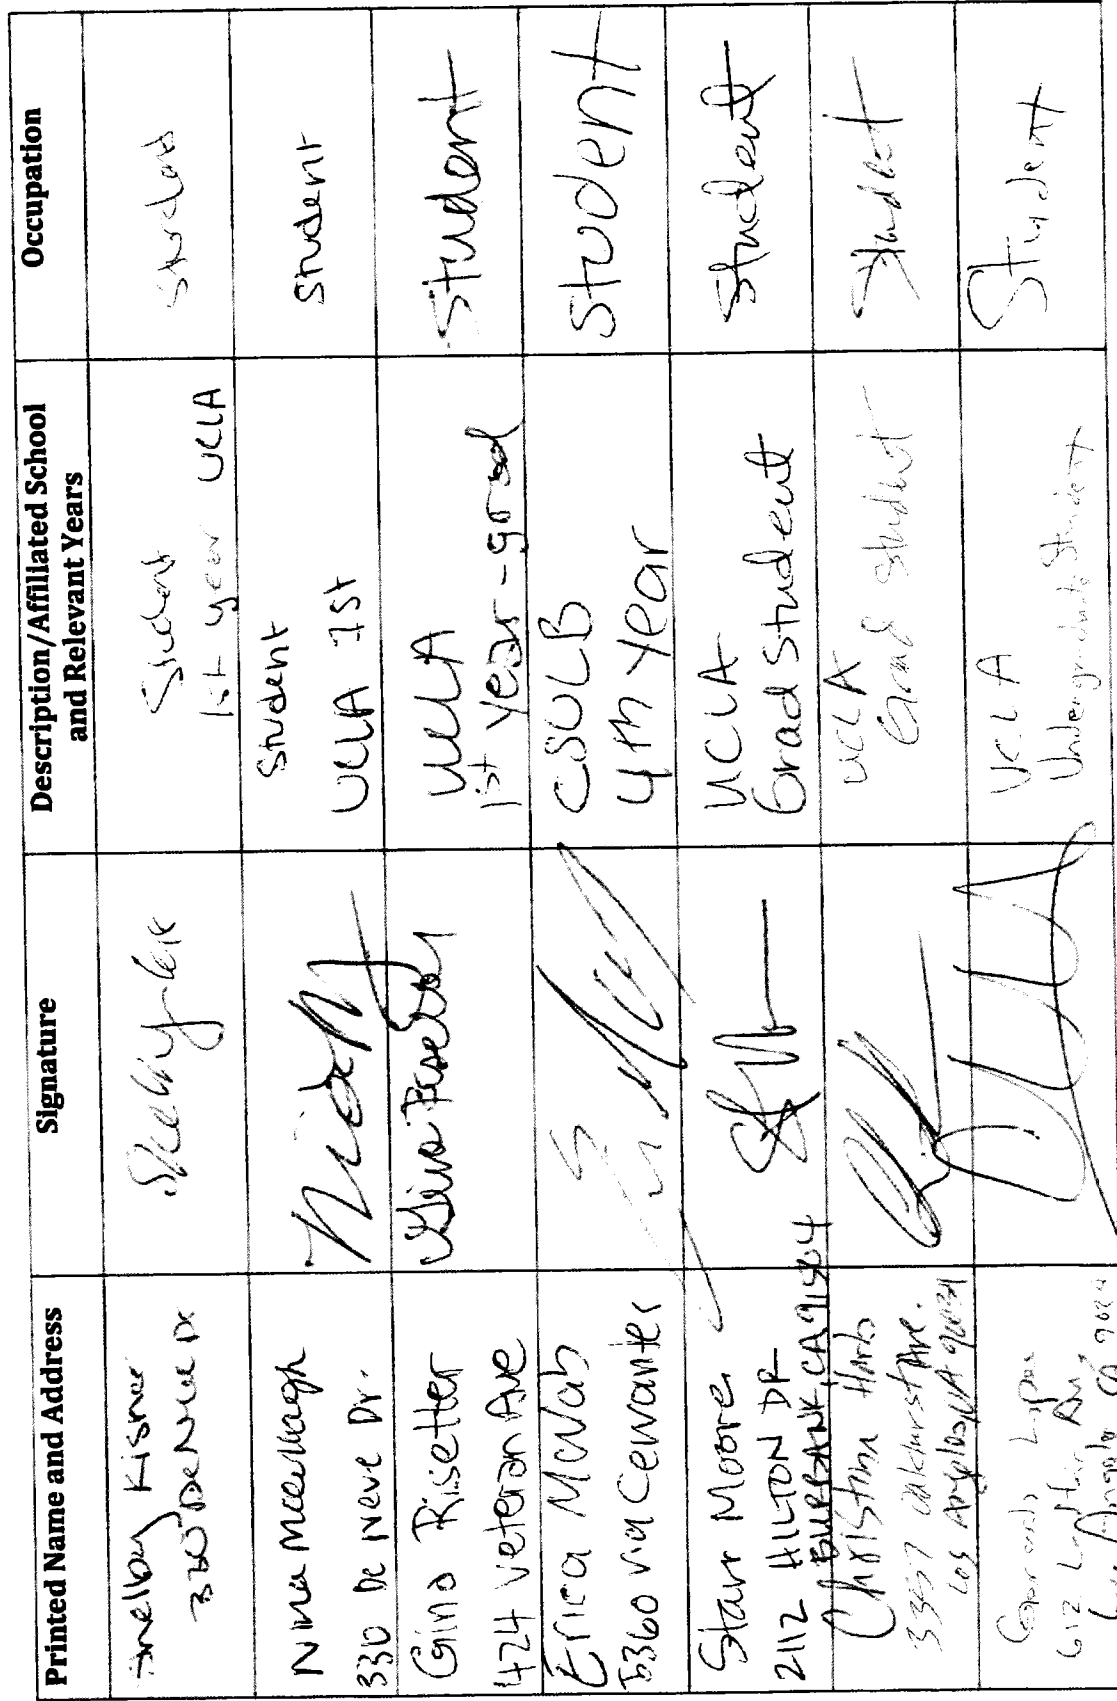 Printed Name and Address
Signature
Description/Affiliated School
and Relevant Years
Occupation
Shelby Kisner
330 De Neve Dr
Student
1st year UCLA
Student
Nina
330 De Neve Dr.
Student
UCLA 1st
Student
Gino Risetter
424 Veteran Ave
UCLA
1st year-grad
Student
Erica McNab
5360 Via Cervantes
CSULB
4th year
Student
Starr Moore
2112 HILTON DR
BURBANK, CA 91504
UCLA
Grad Student
Student
3357 Oakhurst Ave.
Los Angeles, CA 90034
UCLA
Grad Student
Student
612
Los Angeles CA
UCLA
Undergraduate Student
Student